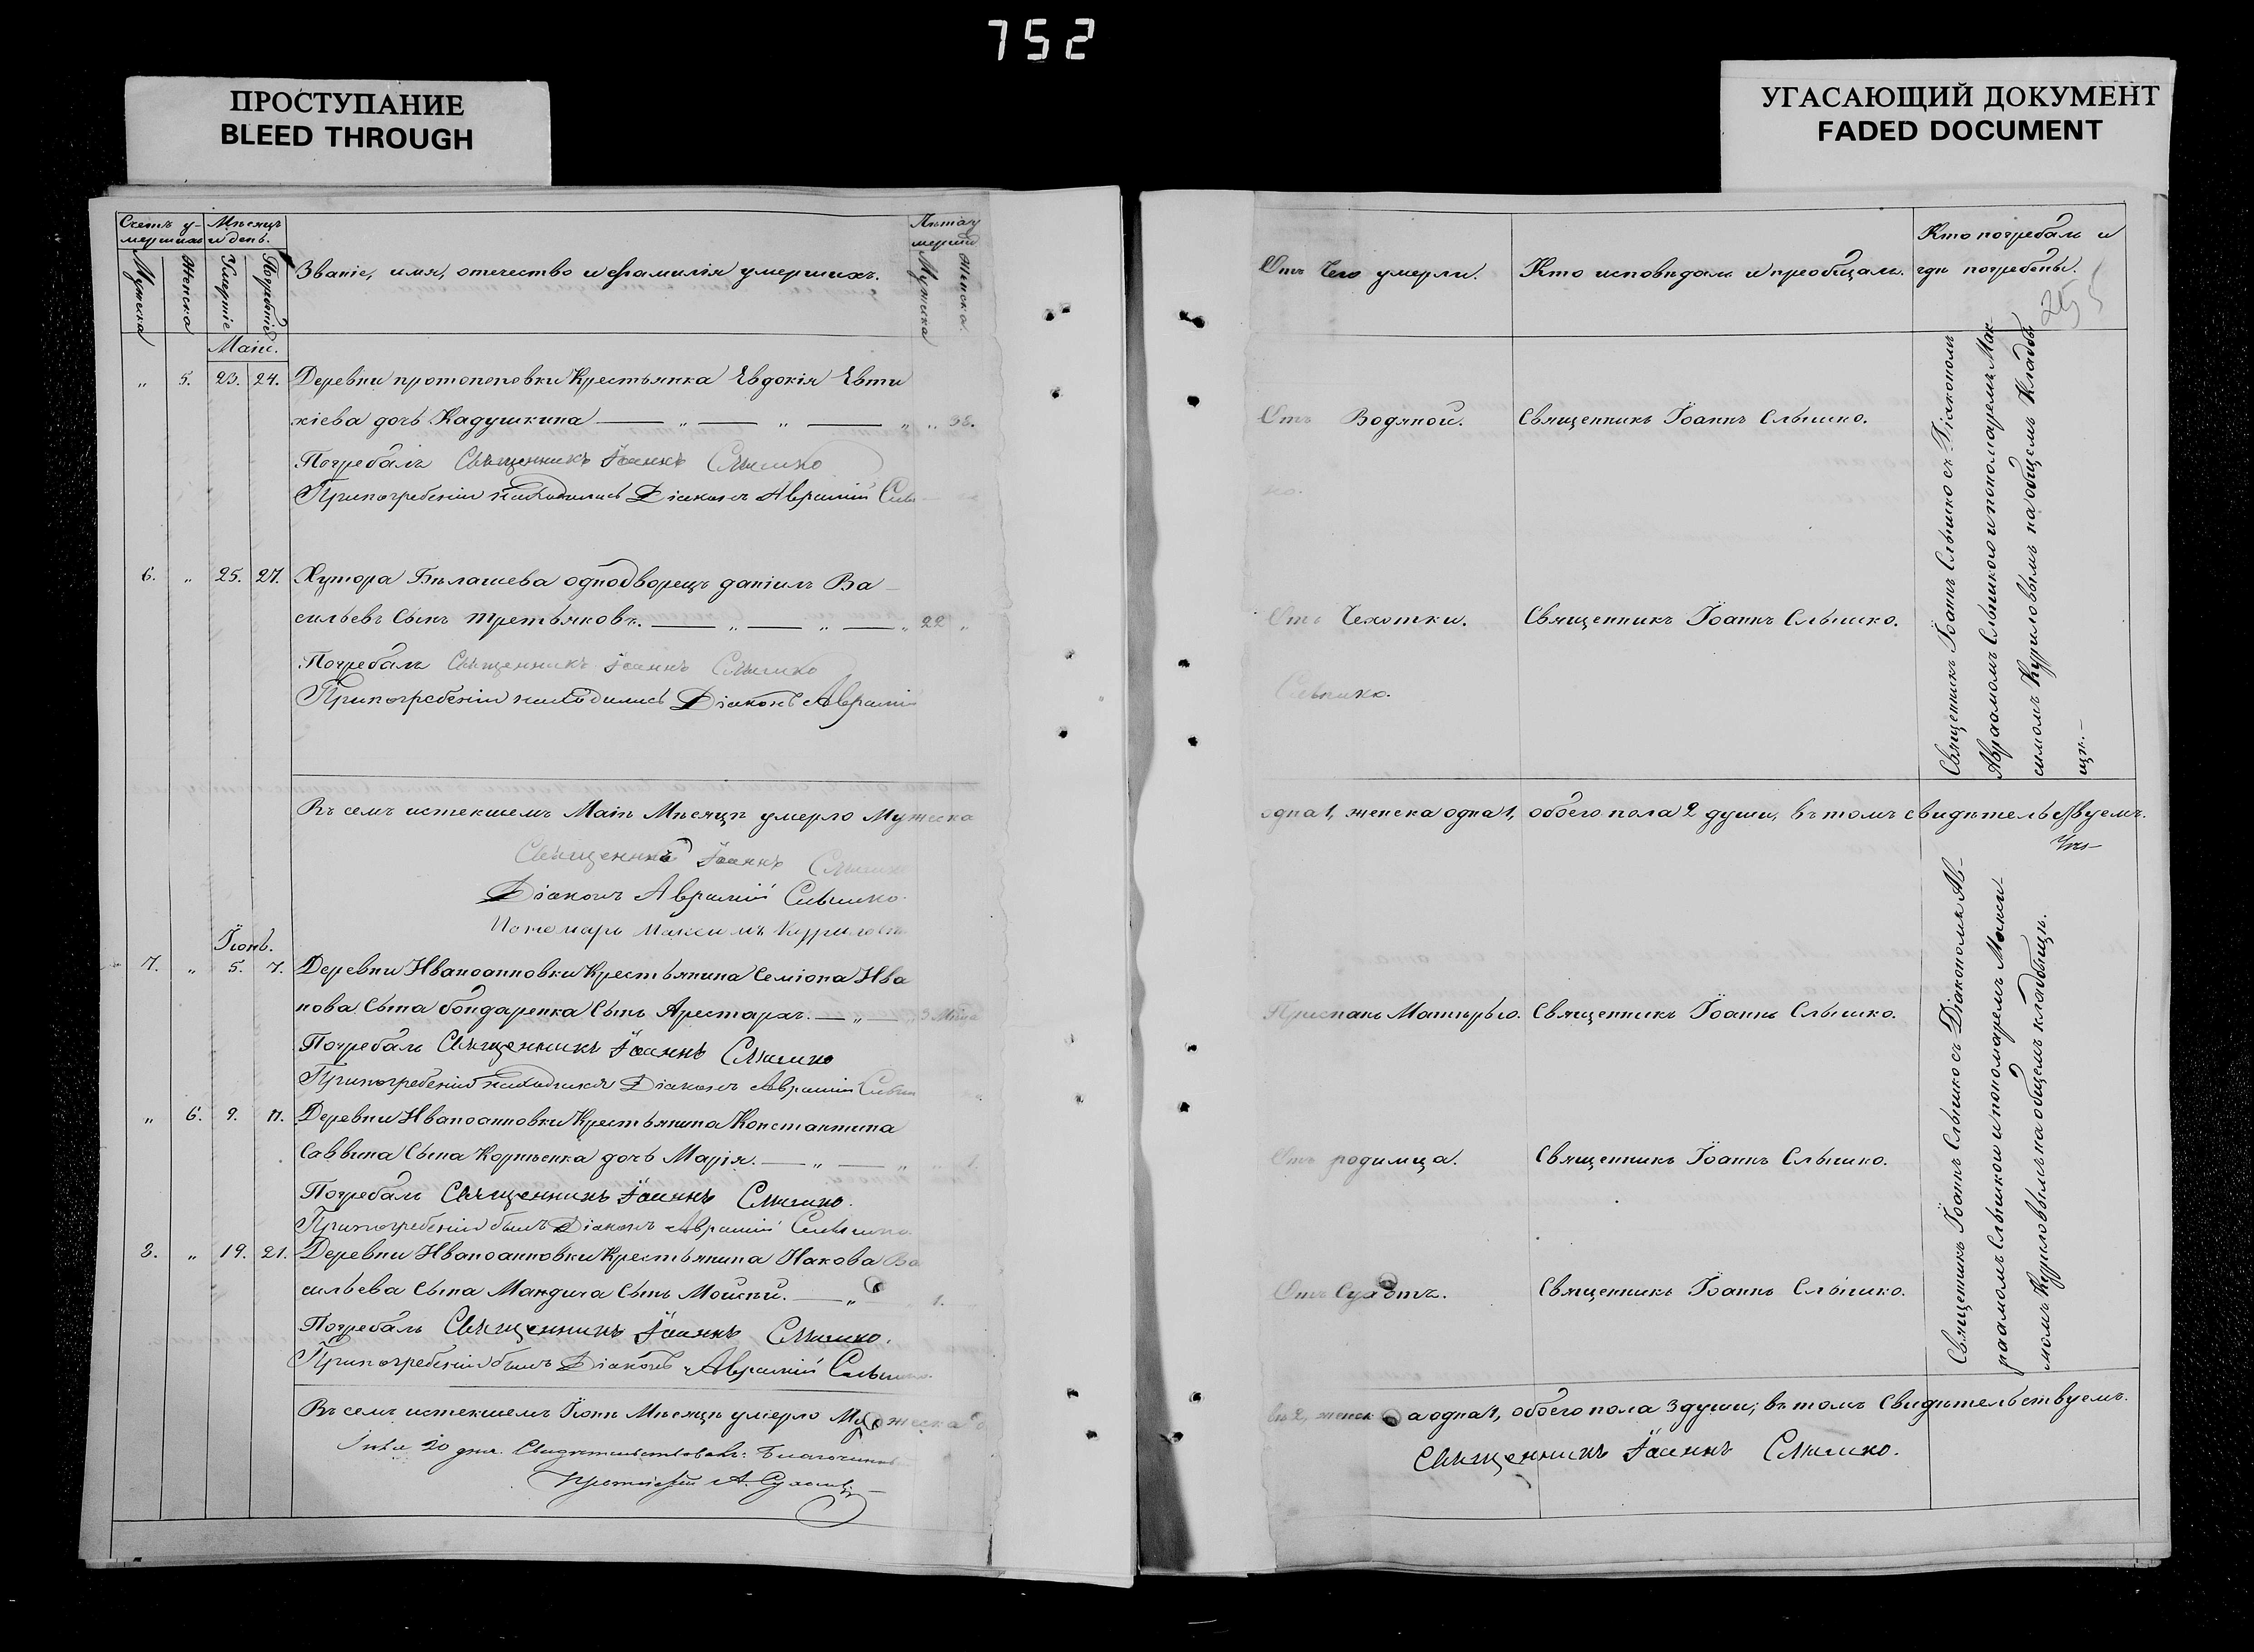 752
ПРОСТУПАНИЕ
BLEED THROUGH
УГАСАЮЩИЙ ДОКУМЕНТ
FADED DOCUMENT
Счетъ у-
мершихъ
Мѣсяцъ
и день.
Мужеска
Женска
Умертіе
Погребеніе
Званіе, имя, отечество и фамилія умершихъ.
Лѣта у
мерши
Мужеска
Женска.
Маій.
„ 5. 23. 24. Деревни протопоповки Крестьянка Евдокія Евти
хіева дочь Кадушкина — „ — „ — „ „ 38.
Погребалъ Священникъ Іоаннъ Слышко
При погребеніи находились Діаконъ Аврамій Слы
6. „ 25. 27. Хутора Бѣлашева однодворецъ даніилъ Ва-
сильевъ Сынъ третьяковъ. — „ — „ — „ 22 „
Погребалъ Священникъ Іоаннъ Слышко
При погребеніи находились Діаконъ Аврамій
Въ семъ истекшемъ Маіѣ Мѣсяцѣ умерло Мужеска
Священникъ Іоаннъ Слышко
Діаконъ Аврамій Слышко.
Пономарь Максимъ Курриловъ
Іюнь.
7. „ 5. 7. Деревни Иваноанновки Крестьянина Семіона Ива
нова Сына бондаренка Сынъ Арестархъ. — „ — „ 3 Мѣсяца
Погребалъ Священникъ Іоаннъ Слышко
При погребеніи находился Діаконъ Аврамій Слыш
„ 6. 9. 11. Деревни Иваноанновки Крестьянина Константина
Саввина Сына Корнѣенка дочь Марія. — „ — „ „ 1.
Погребалъ Священникъ Іоаннъ Слышко.
При погребеніи былъ Діаконъ Аврамій Слышко.
8. „ 19. 21. Деревни Иваноанновки Крестьянина Иакова Ва
сильева Сына Мандича Сынъ Мойсѣй. — „ 1.
Погребалъ Священникъ Іоаннъ Слышко.
При погребеніи былъ Діаконъ Аврамій Слышко.
Въ семъ истекшемъ Іюнѣ Мѣсяцѣ умерло Мужеска
Іюля 20 дня. Свидетельствовалъ: Благочинный
Протоіерей А.
Отъ Чего умерли.
Кто исповѣдалъ и преобщалъ.
Кто погребалъ и
гдѣ погребены.
Отъ Водяной. Священникъ Іоаннъ Слышко.
ко.
Отъ Чехотки. Священникъ Іоаннъ Слышко.
Слышко.
Священникъ Іоаннъ Слышко съ Діакономъ
Авраамомъ Слышкою и пономаремъ Мак-
симомъ Курриловымъ на общемъ Кладби
щѣ.—
одна 1, женска одна 1, обоего пола 2 души, въ томъ свидѣтельствуемъ.
Приспанъ Матерью. Священникъ Іоаннъ Слышко.
Отъ родимца. Священникъ Іоаннъ Слышко.
Отъ Сухотъ. Священникъ Іоаннъ Слышко.
Священникъ Іоаннъ Слышко съ Діакономъ Ав-
раамомъ Слышкой и пономаремъ Макси-
момъ Курриловымъ на общемъ кладбищѣ.
въ 2, женска одна 1, обоего пола 3 души; въ томъ Свидѣтельствуемъ.
Священникъ Іоаннъ Слышко.